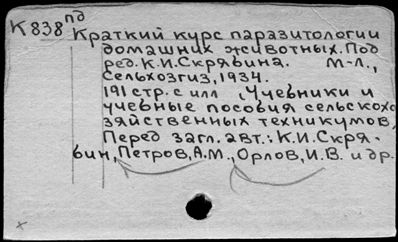 К838 пд
Краткий курс паразитологии
домашних животных. Под
ред. К.И. Скрябина. М-Л.,
Сельхозгиз, 1934.
191 стр. с илл (Учебники и
учебные пособия сельскохо
зяйственных техникумов,
Перед загл. авт.: К.И. Скря-
бин, Петров, А.М., Орлов, И.В. и др.